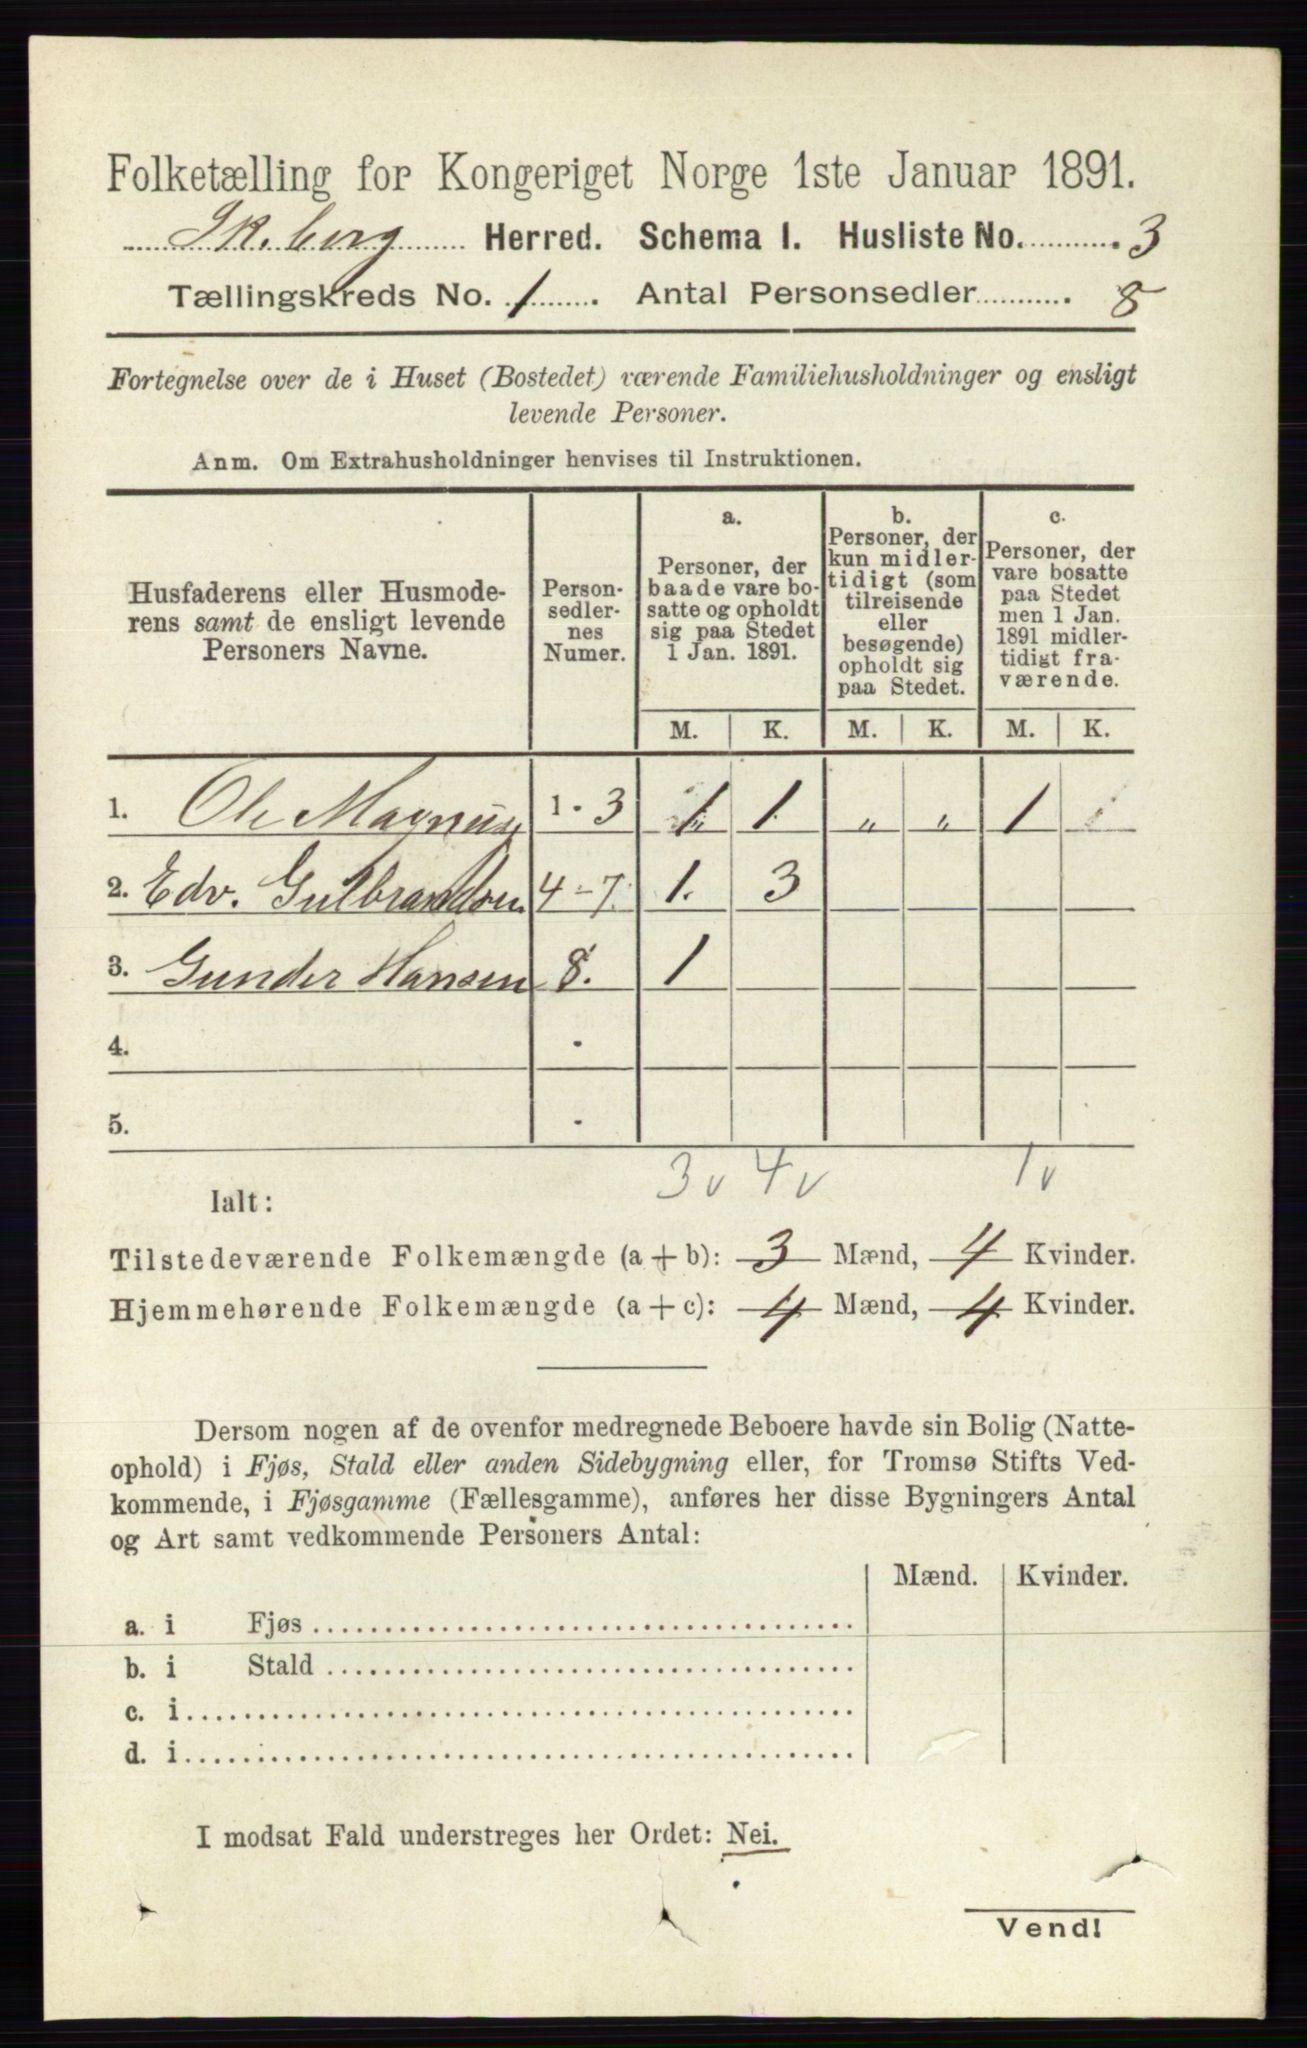 Folketælling for Kongeriget Norge 1ste Januar 1891.
Skeberg Herred. Schema I. Husliste No. 3
Tællingskreds No. 1. Antal Personsedler 8
Fortegnelse over de i Huset (Bostedet) værende Familiehusholdninger og ensligt
levende Personer.
Anm. Om Extrahusholdninger henvises til Instruktionen.
Husfaderens eller Husmode-
rens samt de ensligt levende
Personers Navne.
Person-
sedler-
nes
Numer.
a.
Personer, der
baade vare bo-
satte og opholdt
sig paa Stedet
1 Jan. 1891.
b.
Personer, der
kun midler-
tidigt (som
tilreisende
eller
besøgende)
opholdt sig
paa Stedet.
c.
Personer, der
vare bosatte
paa Stedet
men 1 Jan.
1891 midler-
tidigt fra-
værende.
M. K. M. K. M. K.
1. Ole Magnus 1 - 3 1 1 " " 1
2. Edv. Gulbrandsen 4 - 7. 1. 3
3. Gunder Hansen 8. 1
4. -
5. -
3 v 4 v 1 v
Ialt:
Tilstedeværende Folkemængde (a + b): 3 Mænd, 4 Kvinder.
Hjemmehørende Folkemængde (a + c): 4 Mænd, 4 Kvinder.
Dersom nogen af de ovenfor medregnede Beboere havde sin Bolig (Natte-
ophold) i Fjøs, Stald eller anden Sidebygning eller, for Tromsø Stifts Ved-
kommende, i Fjøsgamme (Fællesgamme), anføres her disse Bygningers Antal
og Art samt vedkommende Personers Antal:
Mænd. Kvinder.
a. i Fjøs
b. i Stald
c. i
d. i
I modsat Fald understreges her Ordet: Nei.
Vend!